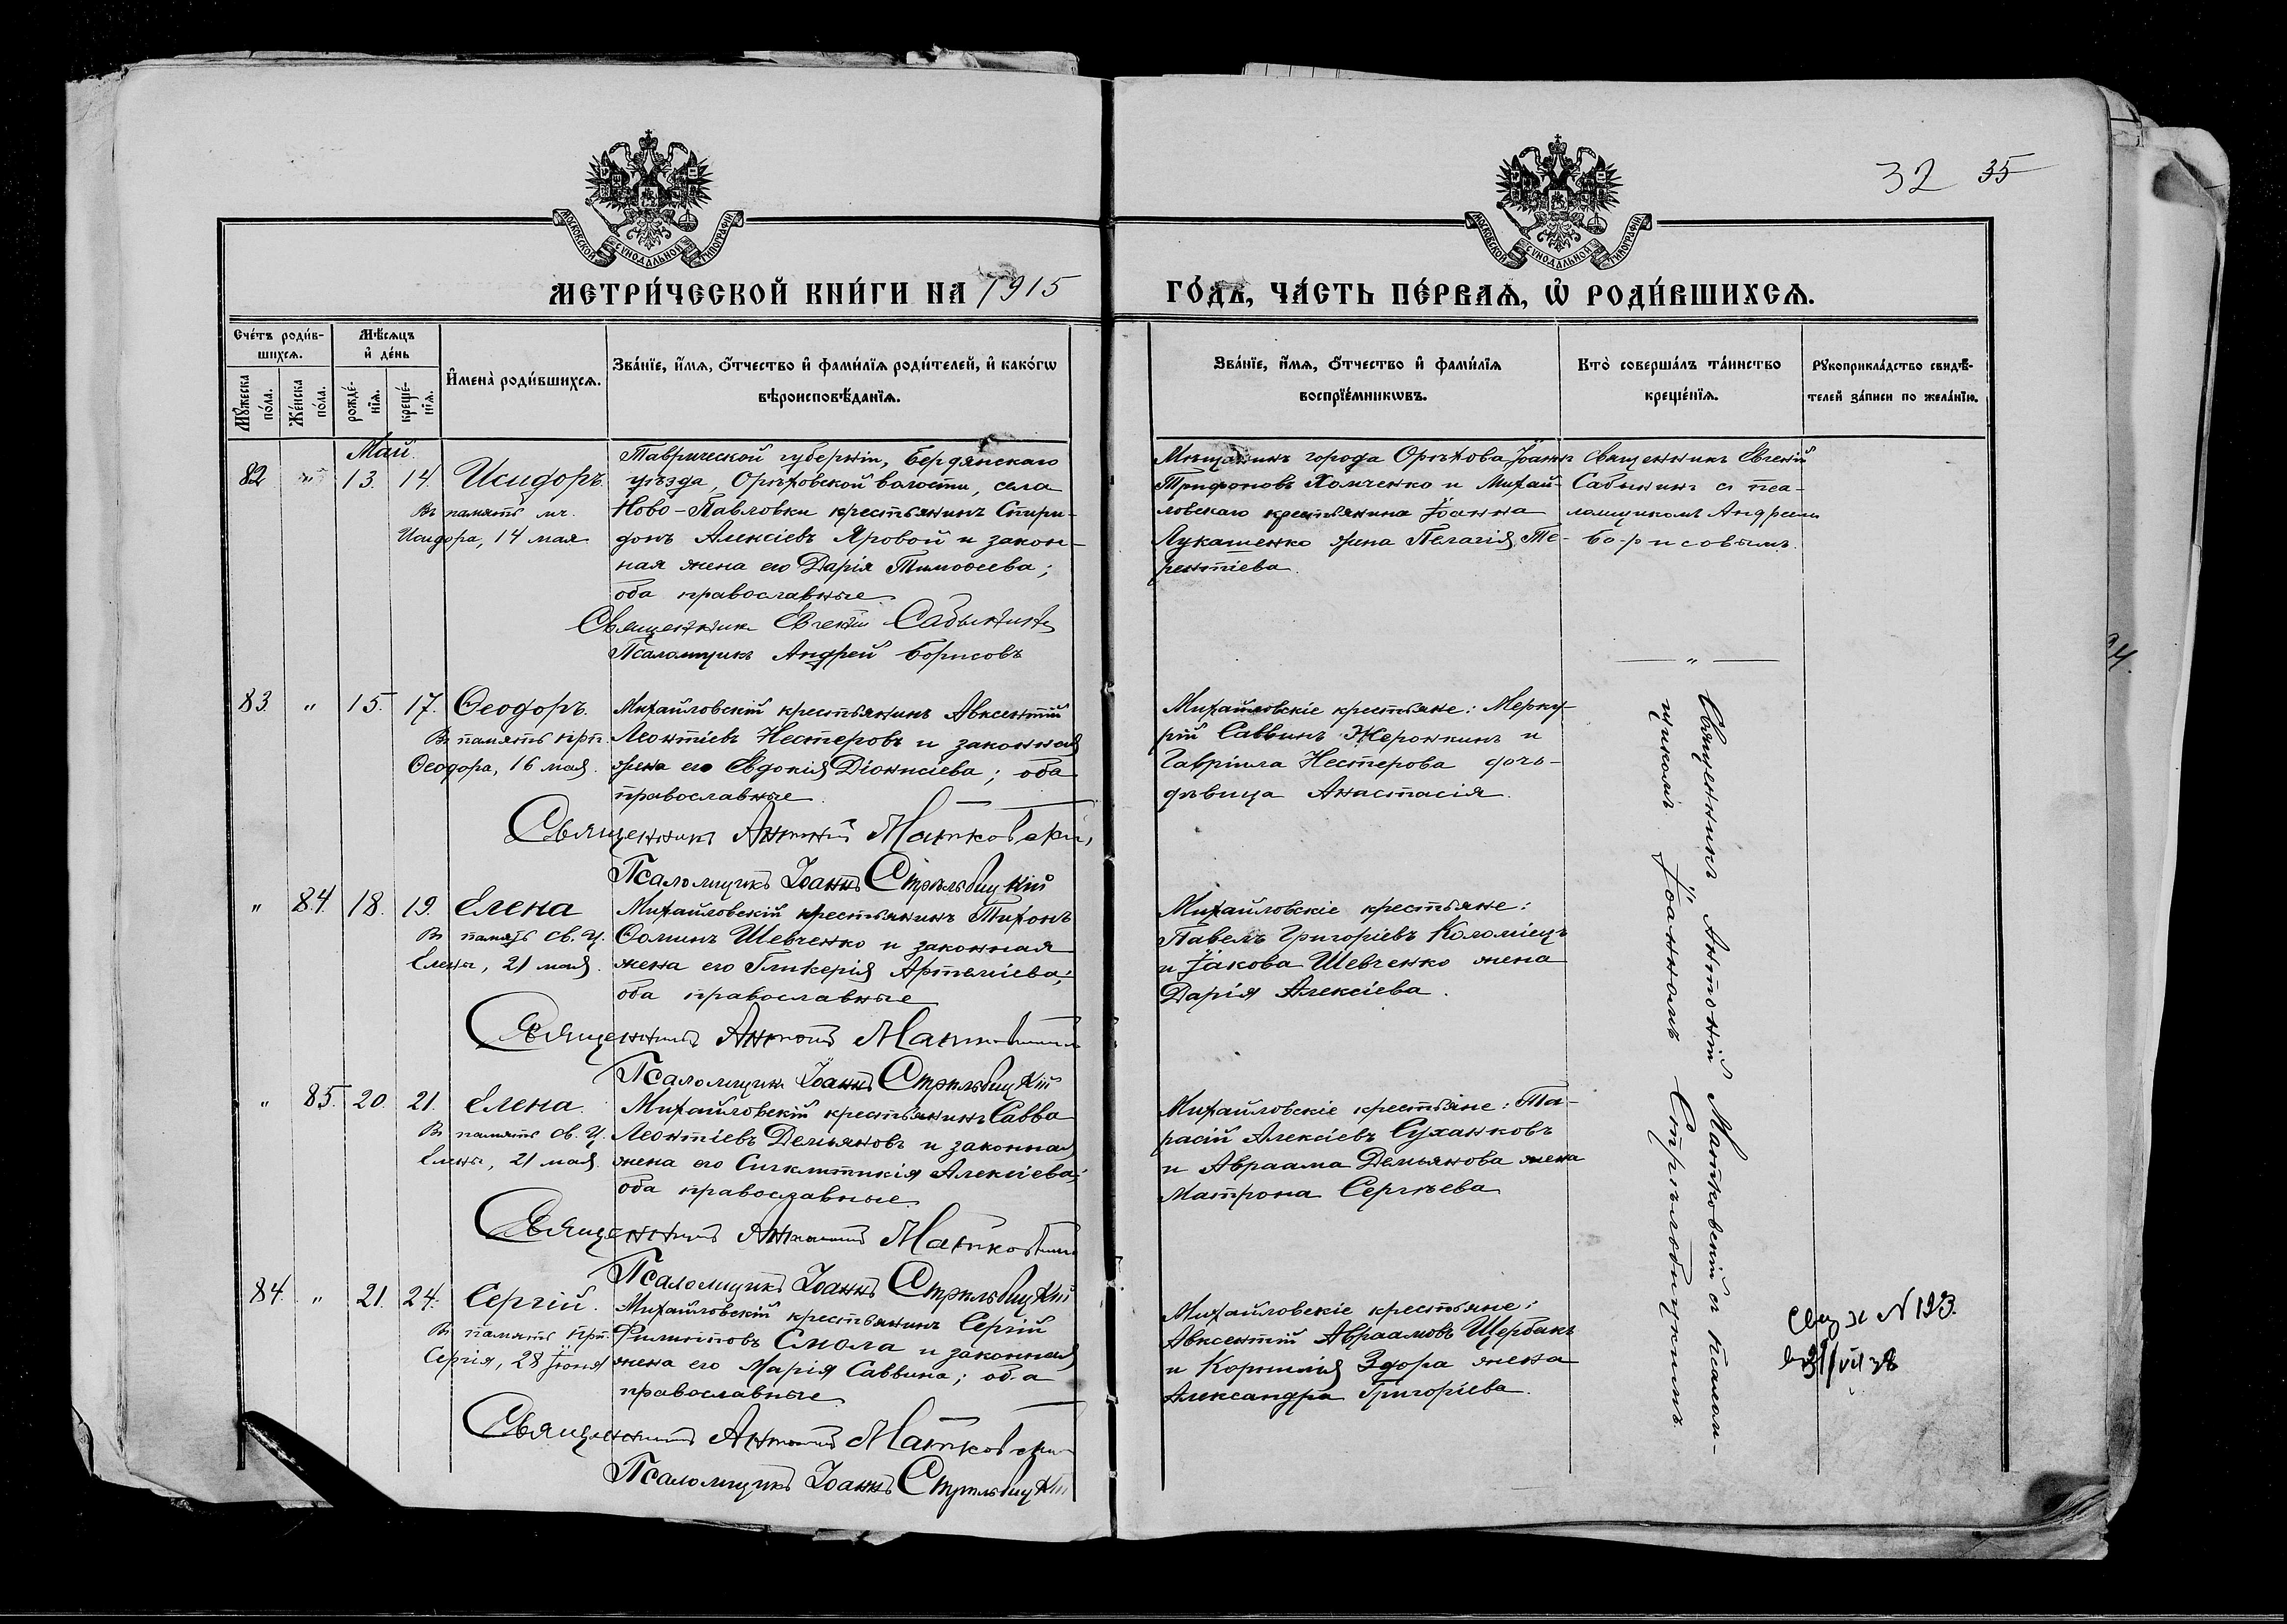 32 35
МОСКОВСКОЙ СѴНОДАЛЬНОЙ ТИПОГРАФІИ
МОСКОВСКОЙ СѴНОДАЛЬНОЙ ТИПОГРАФІИ
МЕТРИ́ЧЕСКОЙ КНИ́ГИ НА 1915
ГО́ДЪ, ЧА́СТЬ ПЕ́РВАѦ, Ѡ҆ РОДИ́ВШИХСѦ.
Сче́тъ роди́в-
шихсѧ.
Мꙋ́жеска по́ла.
Же́нска по́ла.
Мѣ́сѧцъ
и҆ де́нь
рожде́-
нїѧ.
креще́-
нїѧ.
И҆мена̀ роди́вшихсѧ.
Зва́нїе, и҆́мѧ, ѻ҆́тчество и҆ фами́лїѧ роди́телей, и҆ како́гѡ
вѣроисповѣ́данїѧ.
Зва́нїе, и҆́мѧ, ѻ҆́тчество и҆ фами́лїѧ
воспрїе́мникѡвъ.
Кто̀ соверша́лъ та́инство
креще́нїѧ.
Рꙋкоприкла́дство свидѣ́-
телей за́писи по жела́нїю.
Май.
82 " 13. 14. Исидоръ.
Въ память мч.
Исидора, 14 мая
Таврической губерніи, Бердянскаго
уѣзда, Орѣховской волости, села
Ново-Павловки крестьянинъ Спири-
донъ Алексіевъ Яровой и закон-
ная жена его Дарія Тимоѳеева;
оба православные
Священникъ Евгеній Сабынинъ
Псаломщикъ Андрей Борисовъ
Мѣщанинъ города Орѣхова Іоаннъ
Трифоновъ Хомченко и Михай-
ловскаго крестьянина Іоанна
Лукашенко жена Пелагія Те-
рентіева.
Священникъ Евгеній
Сабынинъ съ пса-
ломщикомъ Андреемъ
Борисовымъ.
83. " 15. 17. Ѳеодоръ.
Въ память прп.
Ѳеодора, 16 мая.
Михайловскій крестьянинъ Авксентій
Леонтіевъ Нестеровъ и законная
жена его Евдокія Діонисіева; оба
православные.
Священникъ Антоній Матковскій
Псаломщикъ Іоаннъ Стрѣльбицкій
Михайловскіе крестьяне: Мерку-
рій Саввинъ Жеронкинъ и
Гавріила Нестерова дочь-
дѣвица Анастасія.
" 84. 18. 19. Елена
Въ память св. ц.
Елены, 21 мая.
Михайловскій крестьянинъ Тихонъ
Ѳоминъ Шевченко и законная
жена его Гликерія Артеміева;
оба православные
Священникъ Антоній Матковскій
Псаломщикъ Іоаннъ Стрѣльбицкій
Михайловскіе крестьяне:
Павелъ Григоріевъ Коломіецъ
и Іакова Шевченко жена
Дарія Алексіева.
" 85. 20. 21. Елена.
Въ память св. ц.
Елены, 21 мая.
Михайловскій крестьянинъ Савва
Леонтіевъ Демьяновъ и законная
жена его Синклитикія Алексіева;
оба православные.
Священникъ Антоній Матковскій
Псаломщикъ Іоаннъ Стрѣльбицкій
Михайловскіе крестьяне: Та-
расій Алексіевъ Суханковъ
и Авраама Демьянова жена
Матрона Сергѣева
84. " 21. 24. Сергій.
Въ память прп.
Сергія, 28 Іюня
Михайловскій крестьянинъ Сергій
Филипповъ Смола и законная
жена его Марія Саввина; оба
православные.
Священникъ Антоній Матковскій
Псаломщикъ Іоаннъ Стрѣльбицкій
Михайловскіе крестьяне:
Авксентій Авраамовъ Щербакъ
и Корнилія Здора жена
Александра Григоріева.
Священникъ Антоній Матковскій съ псалом-
щикомъ Іоанномъ Стрѣльбицкимъ.
N 123.